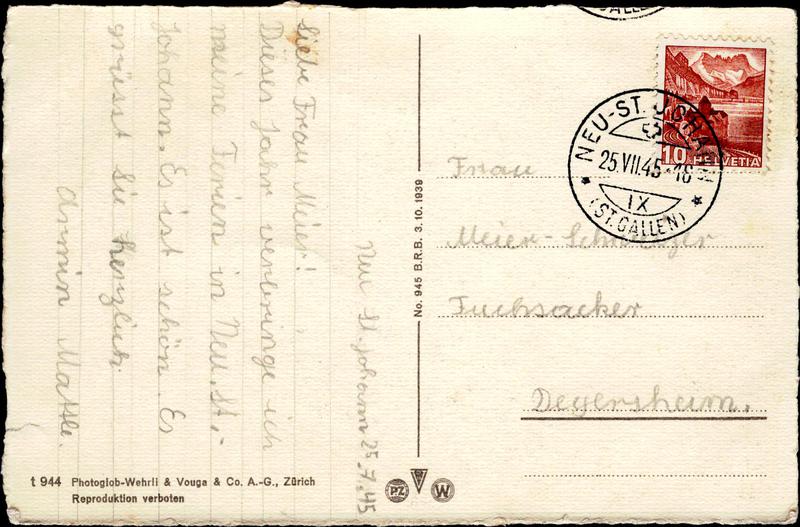 Neu St. Johann 25.7.45
Liebe Frau Meier!
Dieses Jahr verbringe ich
meine Ferien in Neu. St.-
Johann. Es ist schön. Es
grüsst Sie herzlich
Armin Mattle.
t 944 Photoglob-Wehrli & Vouga & Co. A.-G., Zürich
Reproduktion verboten
No. 945 B.R.B. 3.10.1939
PZ
W
ST. GALLEN
10 HELVETIA
NEU-ST. JOHANN
25.VII.45-18
IX
(ST. GALLEN)
Frau
Meier-
Fuchsacker
Degersheim.